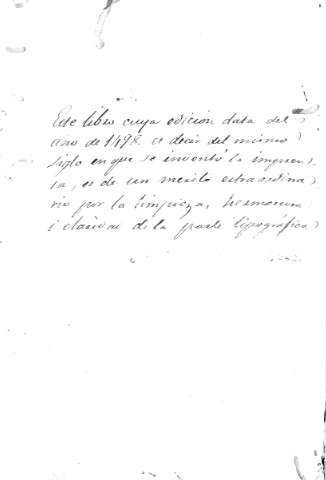 Este libro cuya edición data del
año de 1498 es decir del mismo
siglo en que se inventó la impren
ta, es de un merito extraordina
rio por la limpieza, hermosura
i claridad de la parte tipográfica